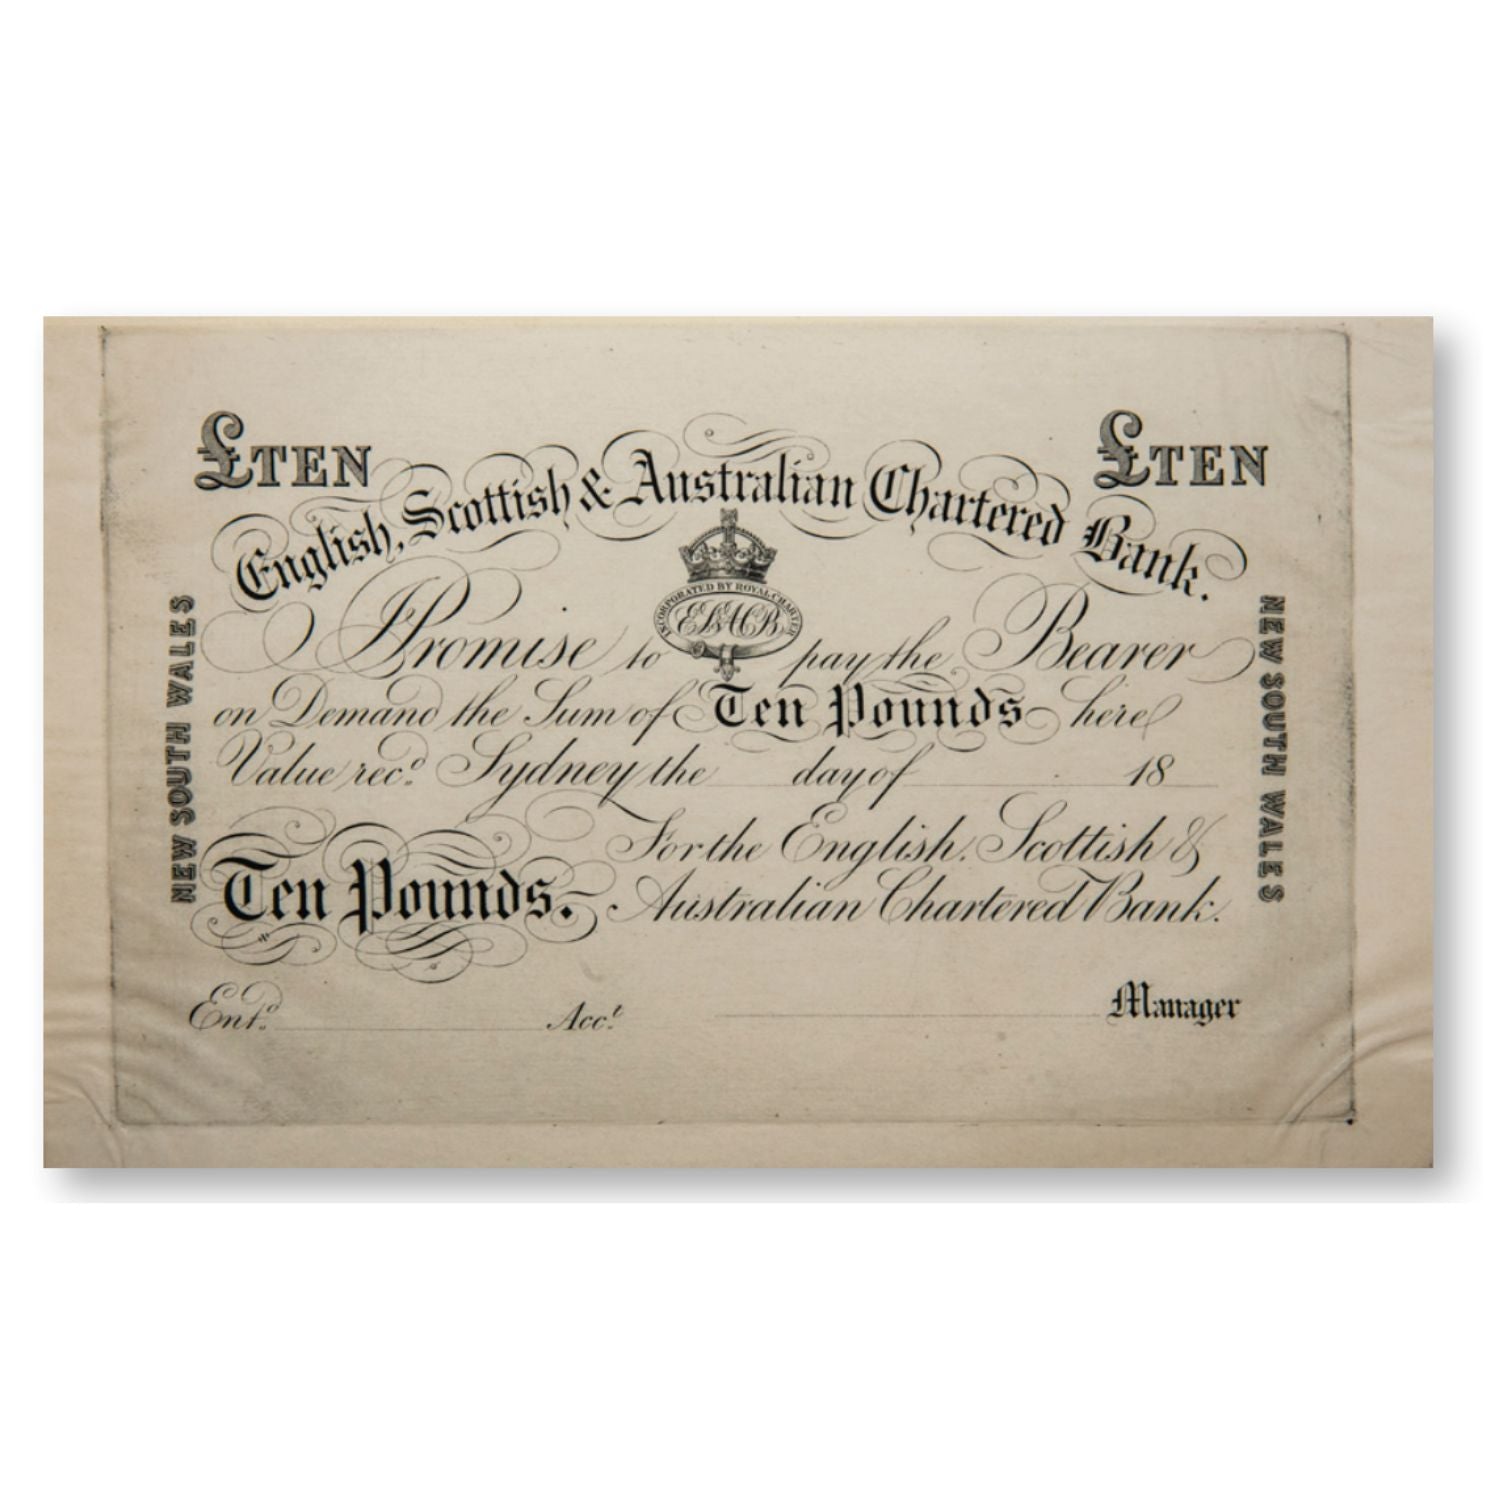 £TEN
£TEN
English, Scottish & Australian Chartered Bank.
INCORPORATED BY ROYAL CHARTER
ES&ACB
I Promise to pay the Bearer
on Demand the Sum of Ten Pounds here
Value rec.d Sydney the day of 18
For the English, Scottish &
Ten Pounds. Australian Chartered Bank.
Ent.d Acc.t Manager
NEW SOUTH WALES
NEW SOUTH WALES